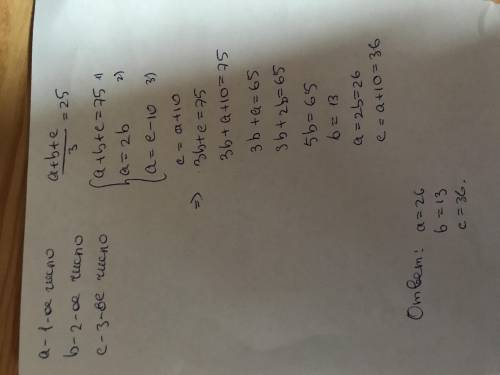 a - 1-ое число
b - 2-ое число
c - 3-ое число
(a+b+c)/3 = 25
{a+b+c=75 1)
{a=2b 2)
{a=c-10 3)
c=a+10
=> 3b+c=75
3b+a+10=75
3b+a=65
3b+2b=65
5b=65
b=13
a=2b=26
c=a+10=36
Ответ: a=26
b=13
c=36.